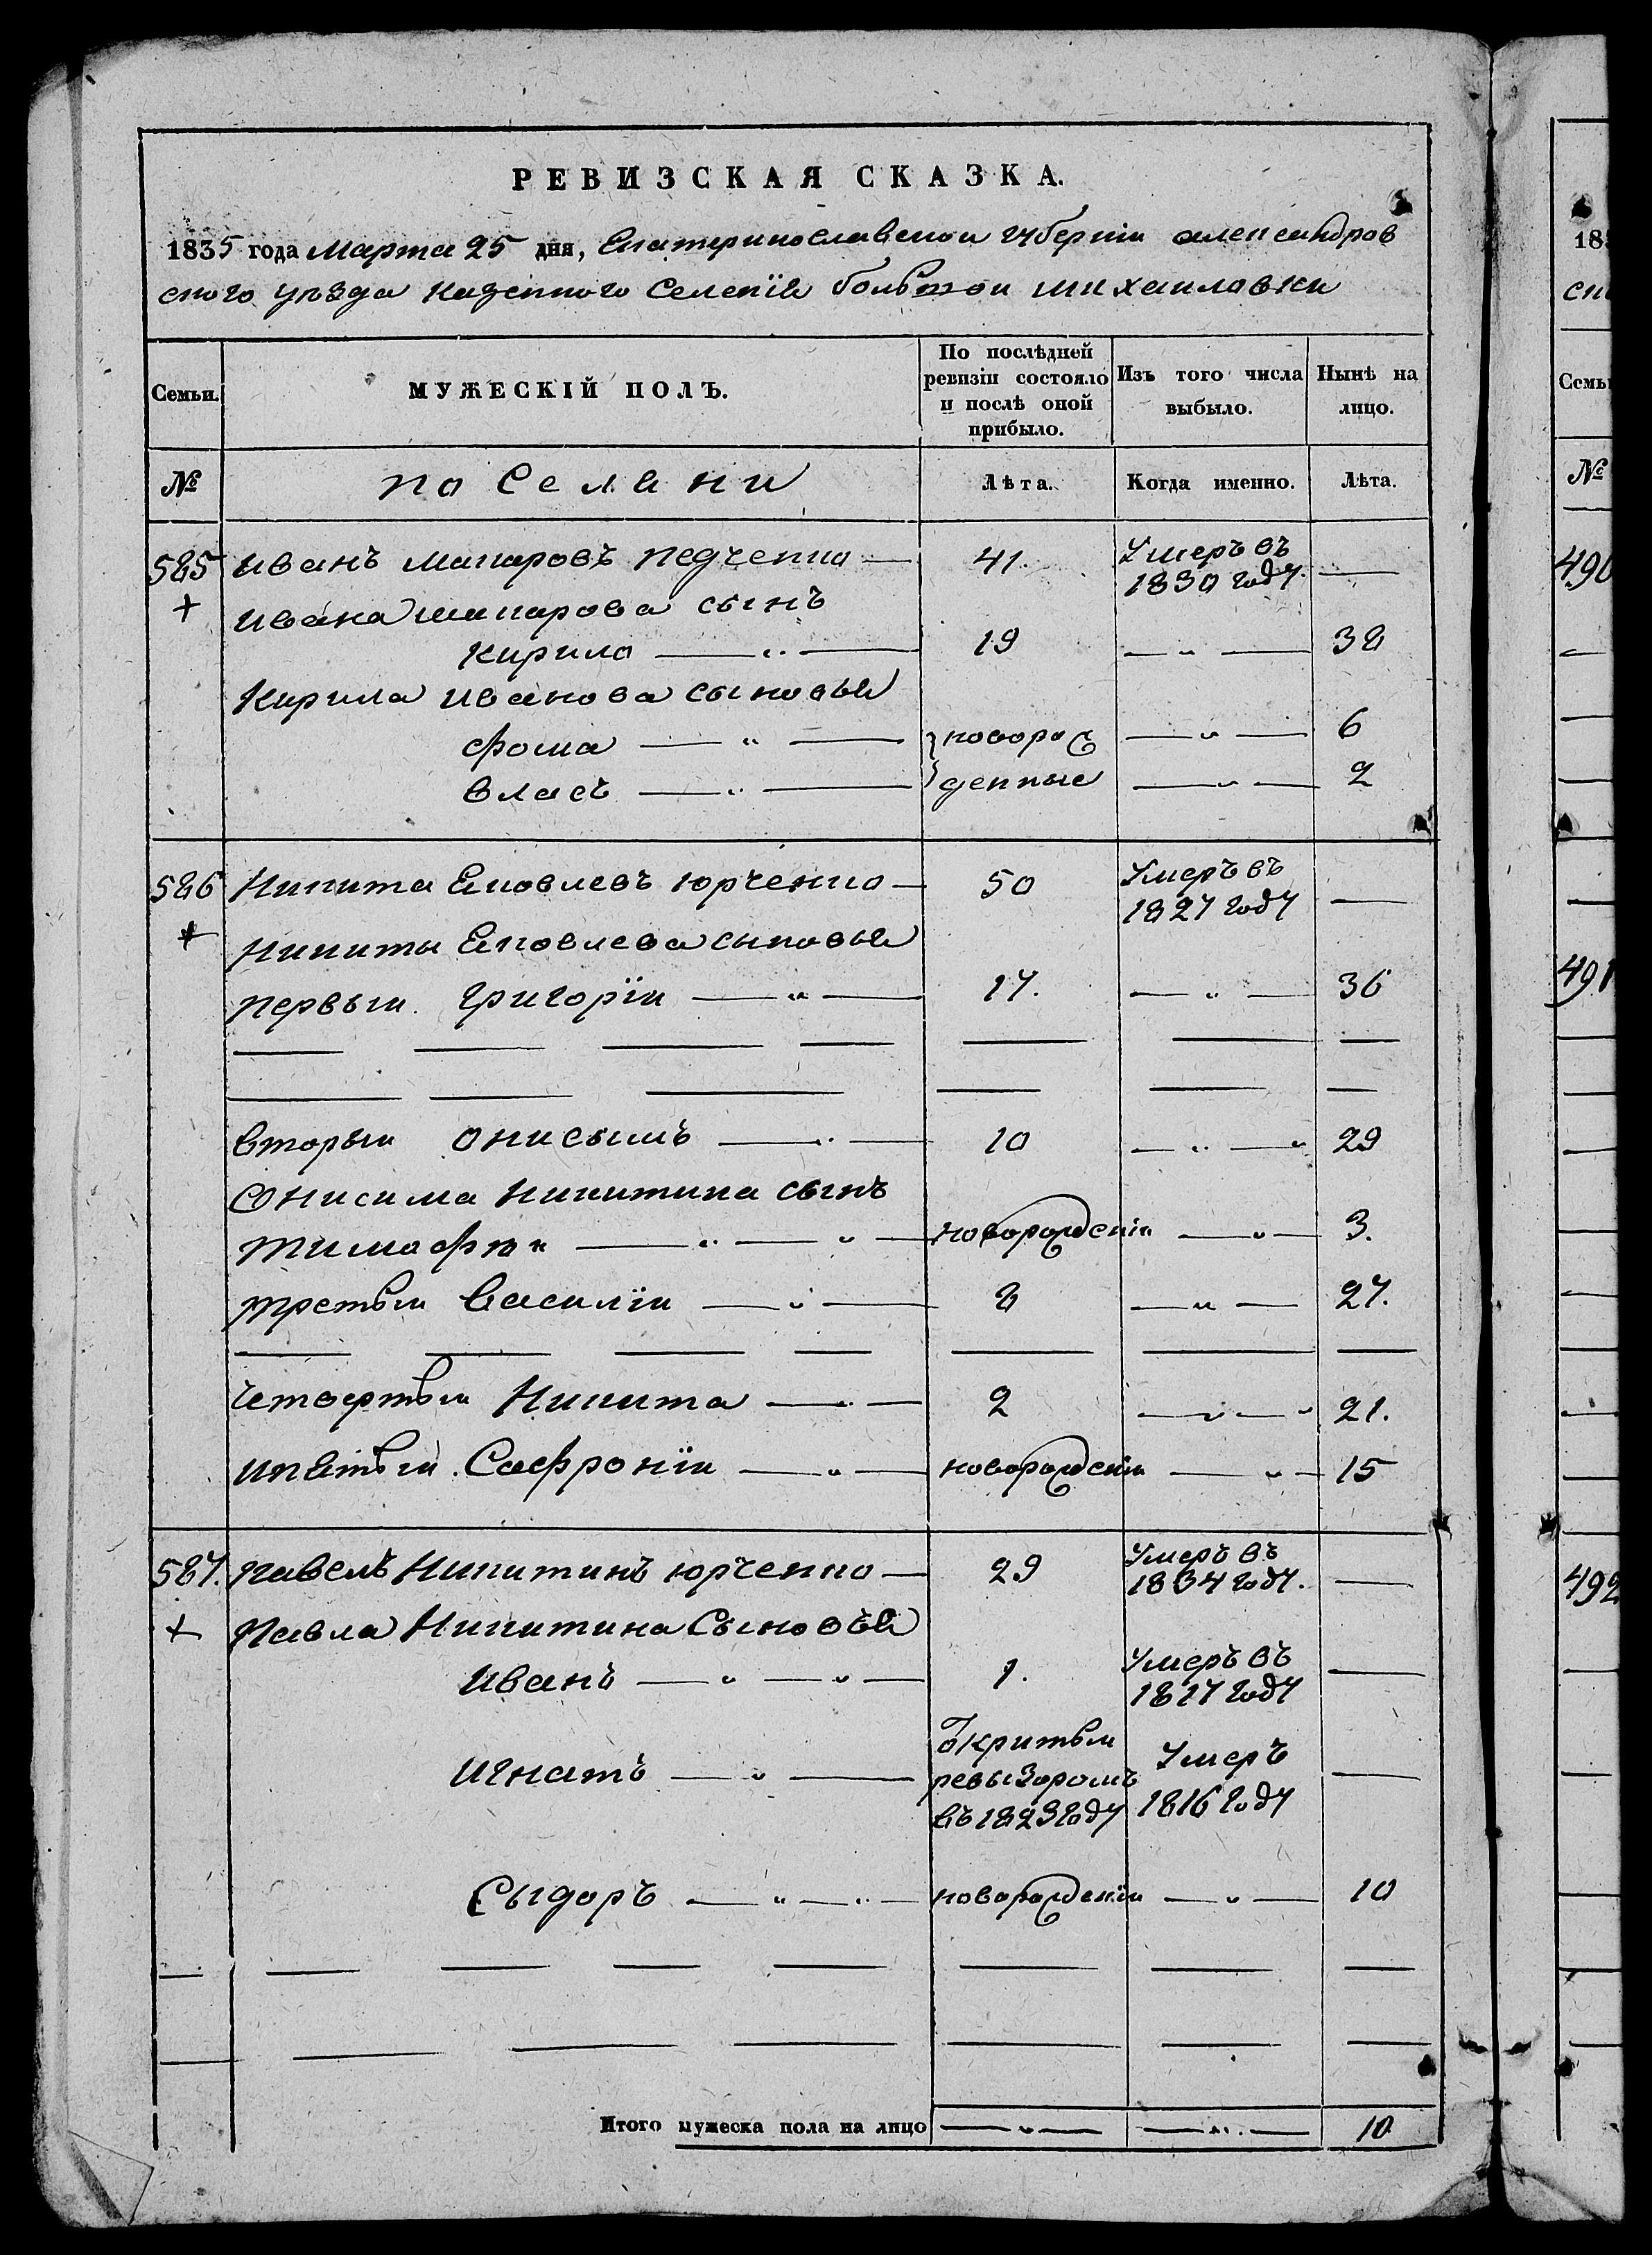 РЕВИЗСКАЯ СКАЗКА.
1835 года Марта 25 дня, Екатеринославской губерніи александров
ского уѣзда казенного Селенія большой михаиловки
Семьи.
МУЖЕСКІЙ ПОЛЪ.
По послѣдней ревизіи состояло и послѣ оной прибыло.
Изъ того числа выбыло.
Нынѣ на лицо.
№ поселяни Лѣта. Когда именно. Лѣта.
585 иванъ макаровъ педченко — 41. Умеръ въ 1830 году. —
+ ивана макарова сынъ
Кирило — „ — 19 — „ — 38
Кирила иванова сыновья
фома — „ — новорож — „ — 6
власъ — „ — денные — „ — 2
586 Никита Яковлевъ юрченко — 50 Умеръ въ 1827 году —
+ никиты Яковлева сыновья
первыи Григоріи — „ — 17. — „ — 36
вторыи онисымъ — „ — 10 — „ — „ 29
Онисима никитина сынъ
тимофѣи — „ — „ — новорожденіи — „ — 3.
третьи василіи — „ — 8 — „ — 27.
четвертыи Никита — „ — 2 — „ — „ 21.
ипятыи Сафроніи — „ — новорожденіи — „ — 15
587. павелъ Никитинъ юрченко — 29 Умеръ въ 1834 году. —
+ Павла Никитина Сыновья
иванъ — „ — „ — 1. Умеръ въ 1817 году —
игнатъ — „ — Ѿкритыи ревызоромъ въ 1823 году Умеръ 1816 году —
Сыдоръ — „ — „ — новорожденіи — „ — 10
Итого мужеска пола на лицо — „ — — „ — 10
18
Семь
№
490
491
492